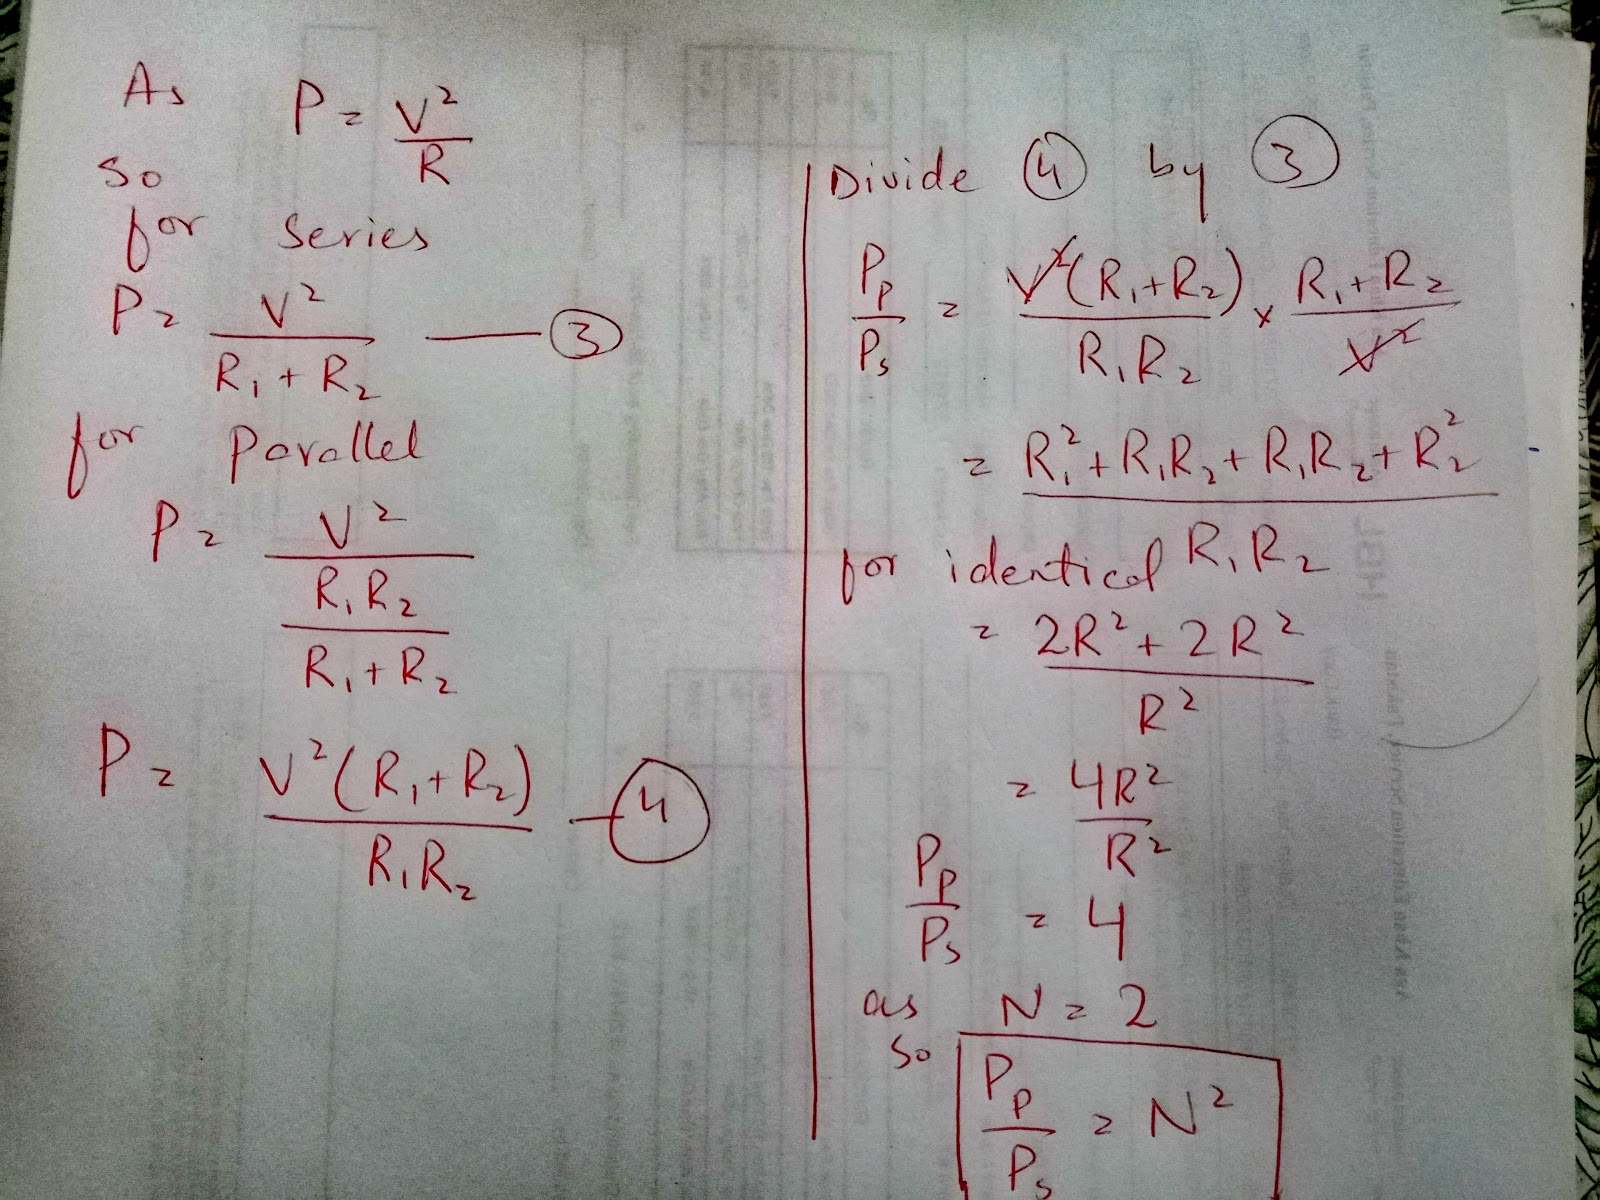 As P = V²/R
So
for series
P = V²/(R₁ + R₂) —— ③
for Parallel
P = V²/((R₁R₂)/(R₁ + R₂))
P = V²(R₁+R₂)/(R₁R₂) — ④
Divide ④ by ③
Pp/Ps = V²(R₁+R₂)/(R₁R₂) × (R₁+R₂)/V²
= (R₁² + R₁R₂ + R₁R₂ + R₂²)/(R₁R₂)
for identical
= (2R² + 2R²)/R²
= 4R²/R²
Pp/Ps = 4
as N = 2
So
Pp/Ps = N²